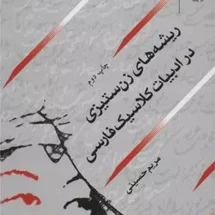 ریشه‌های زن‌ستیزی
در ادبیات کلاسیک فارسی
چاپ دوم
مریم حسینی